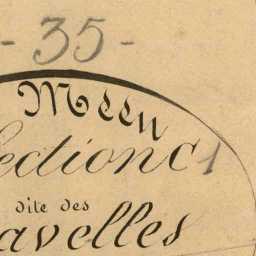 - 35 -
Meen
ectionC1
dite des
avelles